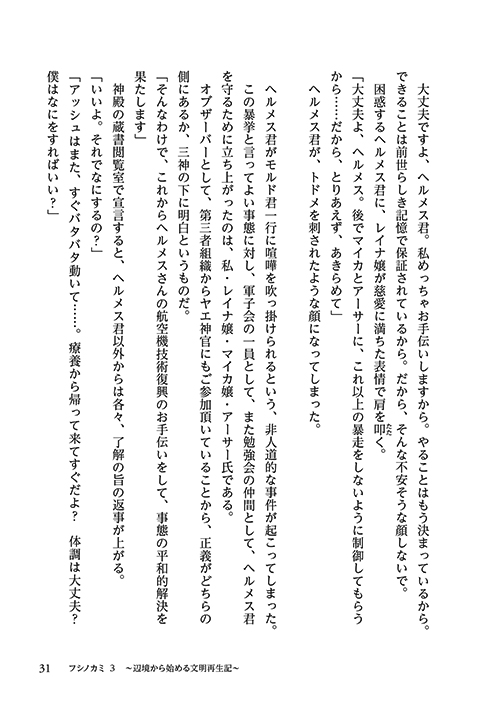 大丈夫ですよ、ヘルメス君。私めっちゃお手伝いしますから。やることはもう決まっているから。
できることは前世らしき記憶で保証されているから。だから、そんな不安そうな顔しないで。
困惑するヘルメス君に、レイナ嬢が慈愛に満ちた表情で肩を叩たたく。
「大丈夫よ、ヘルメス。後でマイカとアーサーに、これ以上の暴走をしないように制御してもらう
から……だから、とりあえず、あきらめて」
ヘルメス君が、トドメを刺されたような顔になってしまった。
ヘルメス君がモルド君一行に喧嘩を吹っ掛けられるという、非人道的な事件が起こってしまった。
この暴挙と言ってよい事態に対し、軍子会の一員として、また勉強会の仲間として、ヘルメス君
を守るために立ち上がったのは、私・レイナ嬢・マイカ嬢・アーサー氏である。
オブザーバーとして、第三者組織からヤエ神官にもご参加頂いていることから、正義がどちらの
側にあるか、三神の下に明白というものだ。
「そんなわけで、これからヘルメスさんの航空機技術復興のお手伝いをして、事態の平和的解決を
果たします」
神殿の蔵書閲覧室で宣言すると、ヘルメス君以外からは各々、了解の旨の返事が上がる。
「いいよ。それでなにするの？」
「アッシュはまた、すぐバタバタ動いて……。療養から帰って来てすぐだよ？　体調は大丈夫？
僕はなにをすればいい？」
31　フシノカミ 3　～辺境から始める文明再生記～